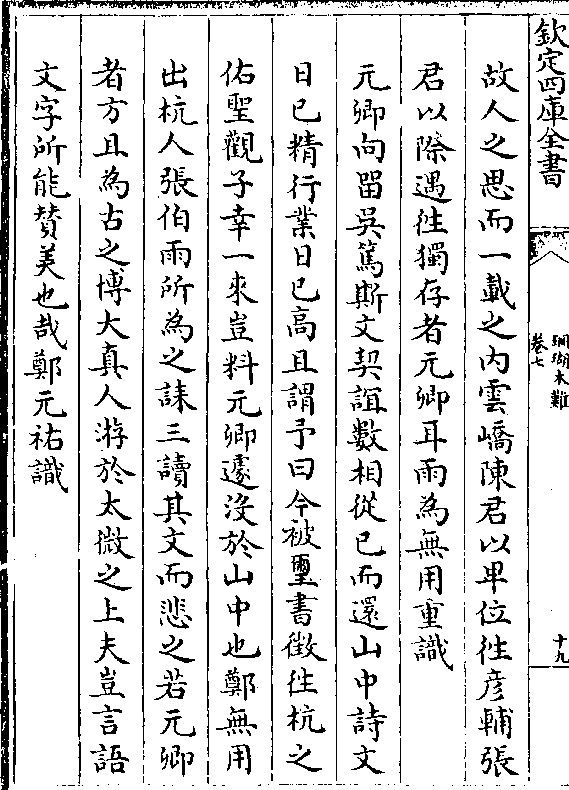 欽定四庫全書
珊瑚木難
卷七
十九
故人之思而一載之內雲嶠陳君以卑位徃彦輔張
君以際遇徃獨存者元卿耳雨為無用重識
元卿向留吳篤斯文契誼數相從已而還山中詩文
日已精行業日已高且謂予曰今被璽書徵徃杭之
佑聖觀子幸一來豈料元卿遽沒於山中也鄭無用
出杭人張伯雨所為之誄三讀其文而悲之若元卿
者方且為古之博大真人游於太微之上夫豈言語
文字所能贊美也哉鄭元祐識